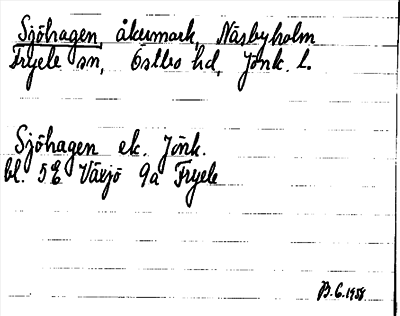 Sjöhagen, åkermark, Näsbyholm
Fryele sn, Östbo hd, Jönk. l.
Sjöhagen ek. Jönk.
bl. 5E Växjö 9a Fryele
B.G. 1958